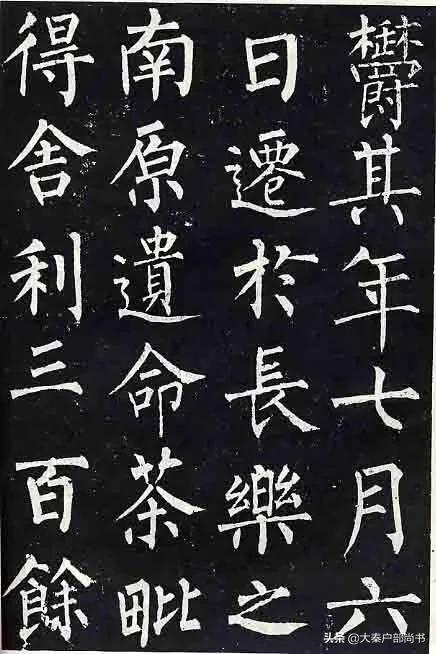 鬱其年七月六
日遷於長樂之
南原遺命茶毗
得舍利三百餘
头条 @大秦户部尚书